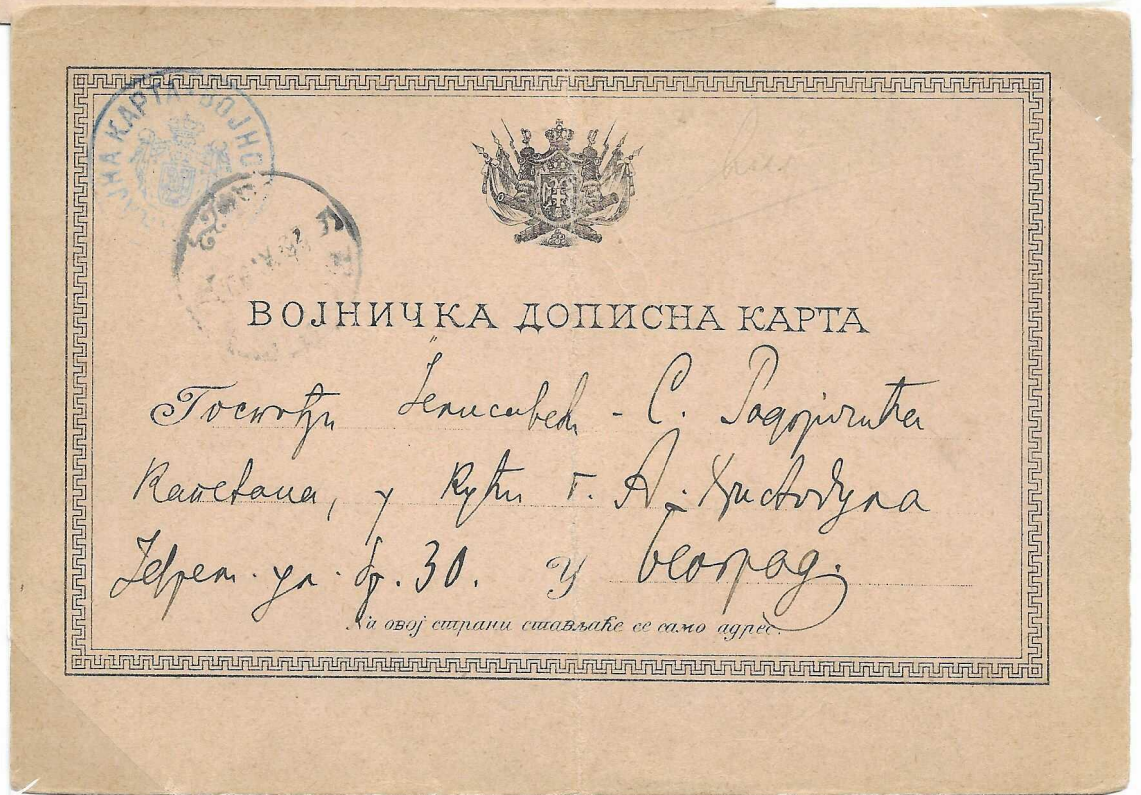 ЈНА КАРТА • ВОЈНО
ВОЈНИЧКА ДОПИСНА КАРТА
Госпођи Јелисавети - С. Радојичића
Капетана, у кући г. А. Христодула
Јеврем. ул. бр. 30. У Београд.
На овој страни стављаће се само адрес.